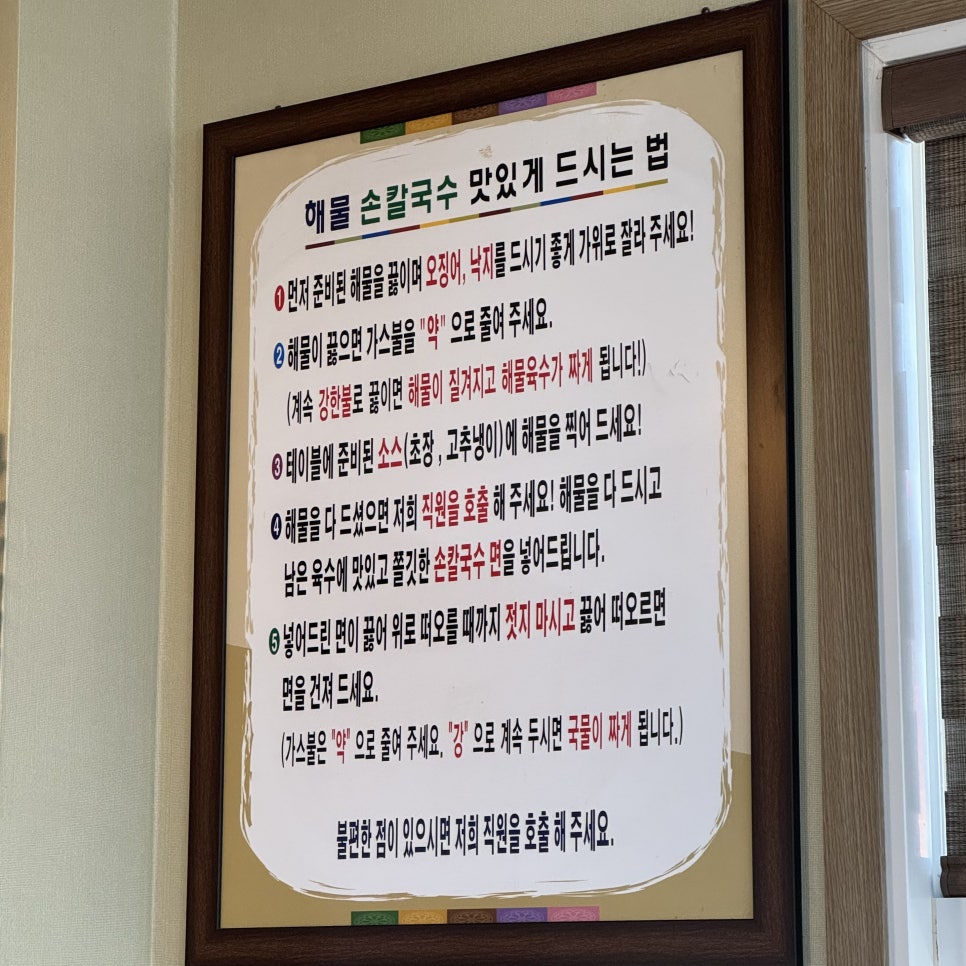 해물 손칼국수 맛있게 드시는 법
1 먼저 준비된 해물을 끓이며 오징어, 낙지를 드시기 좋게 가위로 잘라 주세요!
2 해물이 끓으면 가스불을 "약" 으로 줄여 주세요.
(계속 강한불로 끓이면 해물이 질겨지고 해물육수가 짜게 됩니다!)
3 테이블에 준비된 소스(초장, 고추냉이)에 해물을 찍어 드세요!
4 해물을 다 드셨으면 저희 직원을 호출 해 주세요! 해물을 다 드시고
남은 육수에 맛있고 쫄깃한 손칼국수 면을 넣어드립니다.
5 넣어드린 면이 끓어 위로 떠오를 때까지 젓지 마시고 끓어 떠오르면
면을 건져 드세요.
(가스불은 "약" 으로 줄여 주세요. "강" 으로 계속 두시면 국물이 짜게 됩니다.)
불편한 점이 있으시면 저희 직원을 호출 해 주세요.